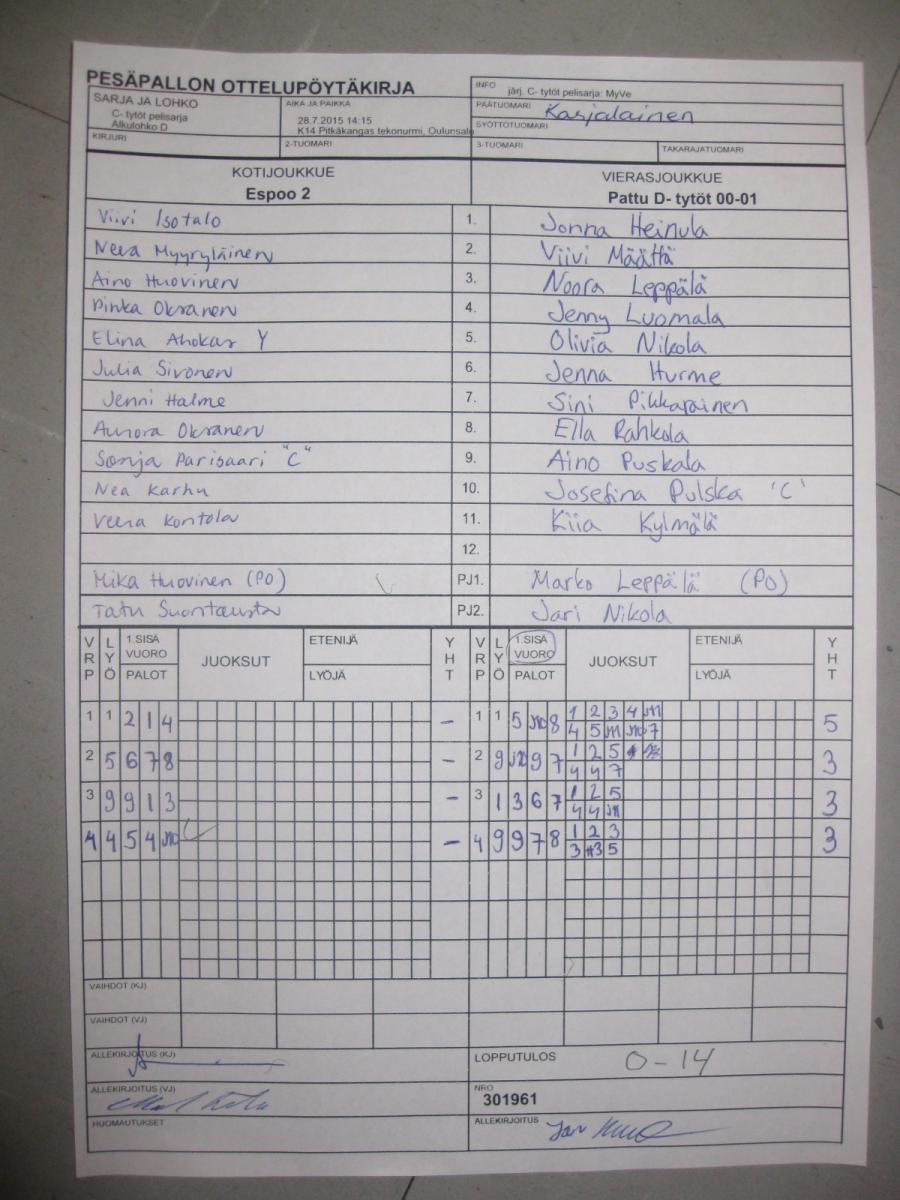 PESÄPALLON OTTELUPÖYTÄKIRJA
INFO järj. C- tytöt pelisarja: MyVe
SARJA JA LOHKO
C- tytöt pelisarja
Alkulohko D
AIKA JA PAIKKA
28.7.2015 14:15
K14 Pitkäkangas tekonurmi, Oulunsalo
PÄÄTUOMARI Karjalainen
SYÖTTÖTUOMARI
KIRJURI
2-TUOMARI
3-TUOMARI
TAKARAJATUOMARI
KOTIJOUKKUE
Espoo 2
VIERASJOUKKUE
Pattu D- tytöt 00-01
Viivi Isotalo 1. Jonna Heinula
Neea Myyryläinen 2. Viivi Määttä
Aino Huovinen 3. Noora Leppälä
Pinka Okranen 4. Jenny Luomala
Elina Ahokas Y 5. Olivia Nikola
Julia Sivonen 6. Jenna Hurme
Jenni Halme 7. Sini Pikkarainen
Aurora Okranen 8. Ella Rahkola
Sonja Parisaari "C" 9. Aino Puskala
Nea Karhu 10. Josefina Pulska 'C'
Veera Kontola 11. Kiia Kylmälä
12.
Mika Huovinen (PO) PJ1. Marko Leppälä (PO)
Tatu Suontausta PJ2. Jari Nikola
VRP LYÖ 1.SISÄ VUORO PALOT JUOKSUT ETENIJÄ LYÖJÄ YHT VRP LYÖ 1.SISÄ VUORO PALOT JUOKSUT ETENIJÄ LYÖJÄ YHT
1 1 2 1 4 - 1 1 5 8 1 2 3 4 5
4 5 7
2 5 6 7 8 - 2 9 9 7 1 2 5 3
4 4 7
3 9 9 1 3 - 3 1 3 6 7 1 2 5 3
4 4
4 4 5 4 - 4 9 9 7 8 1 2 3 3
3 3 5
VAIHDOT (KJ)
VAIHDOT (VJ)
ALLEKIRJOITUS (KJ)
LOPPUTULOS 0-14
ALLEKIRJOITUS (VJ)
NRO
301961
HUOMAUTUKSET
ALLEKIRJOITUS